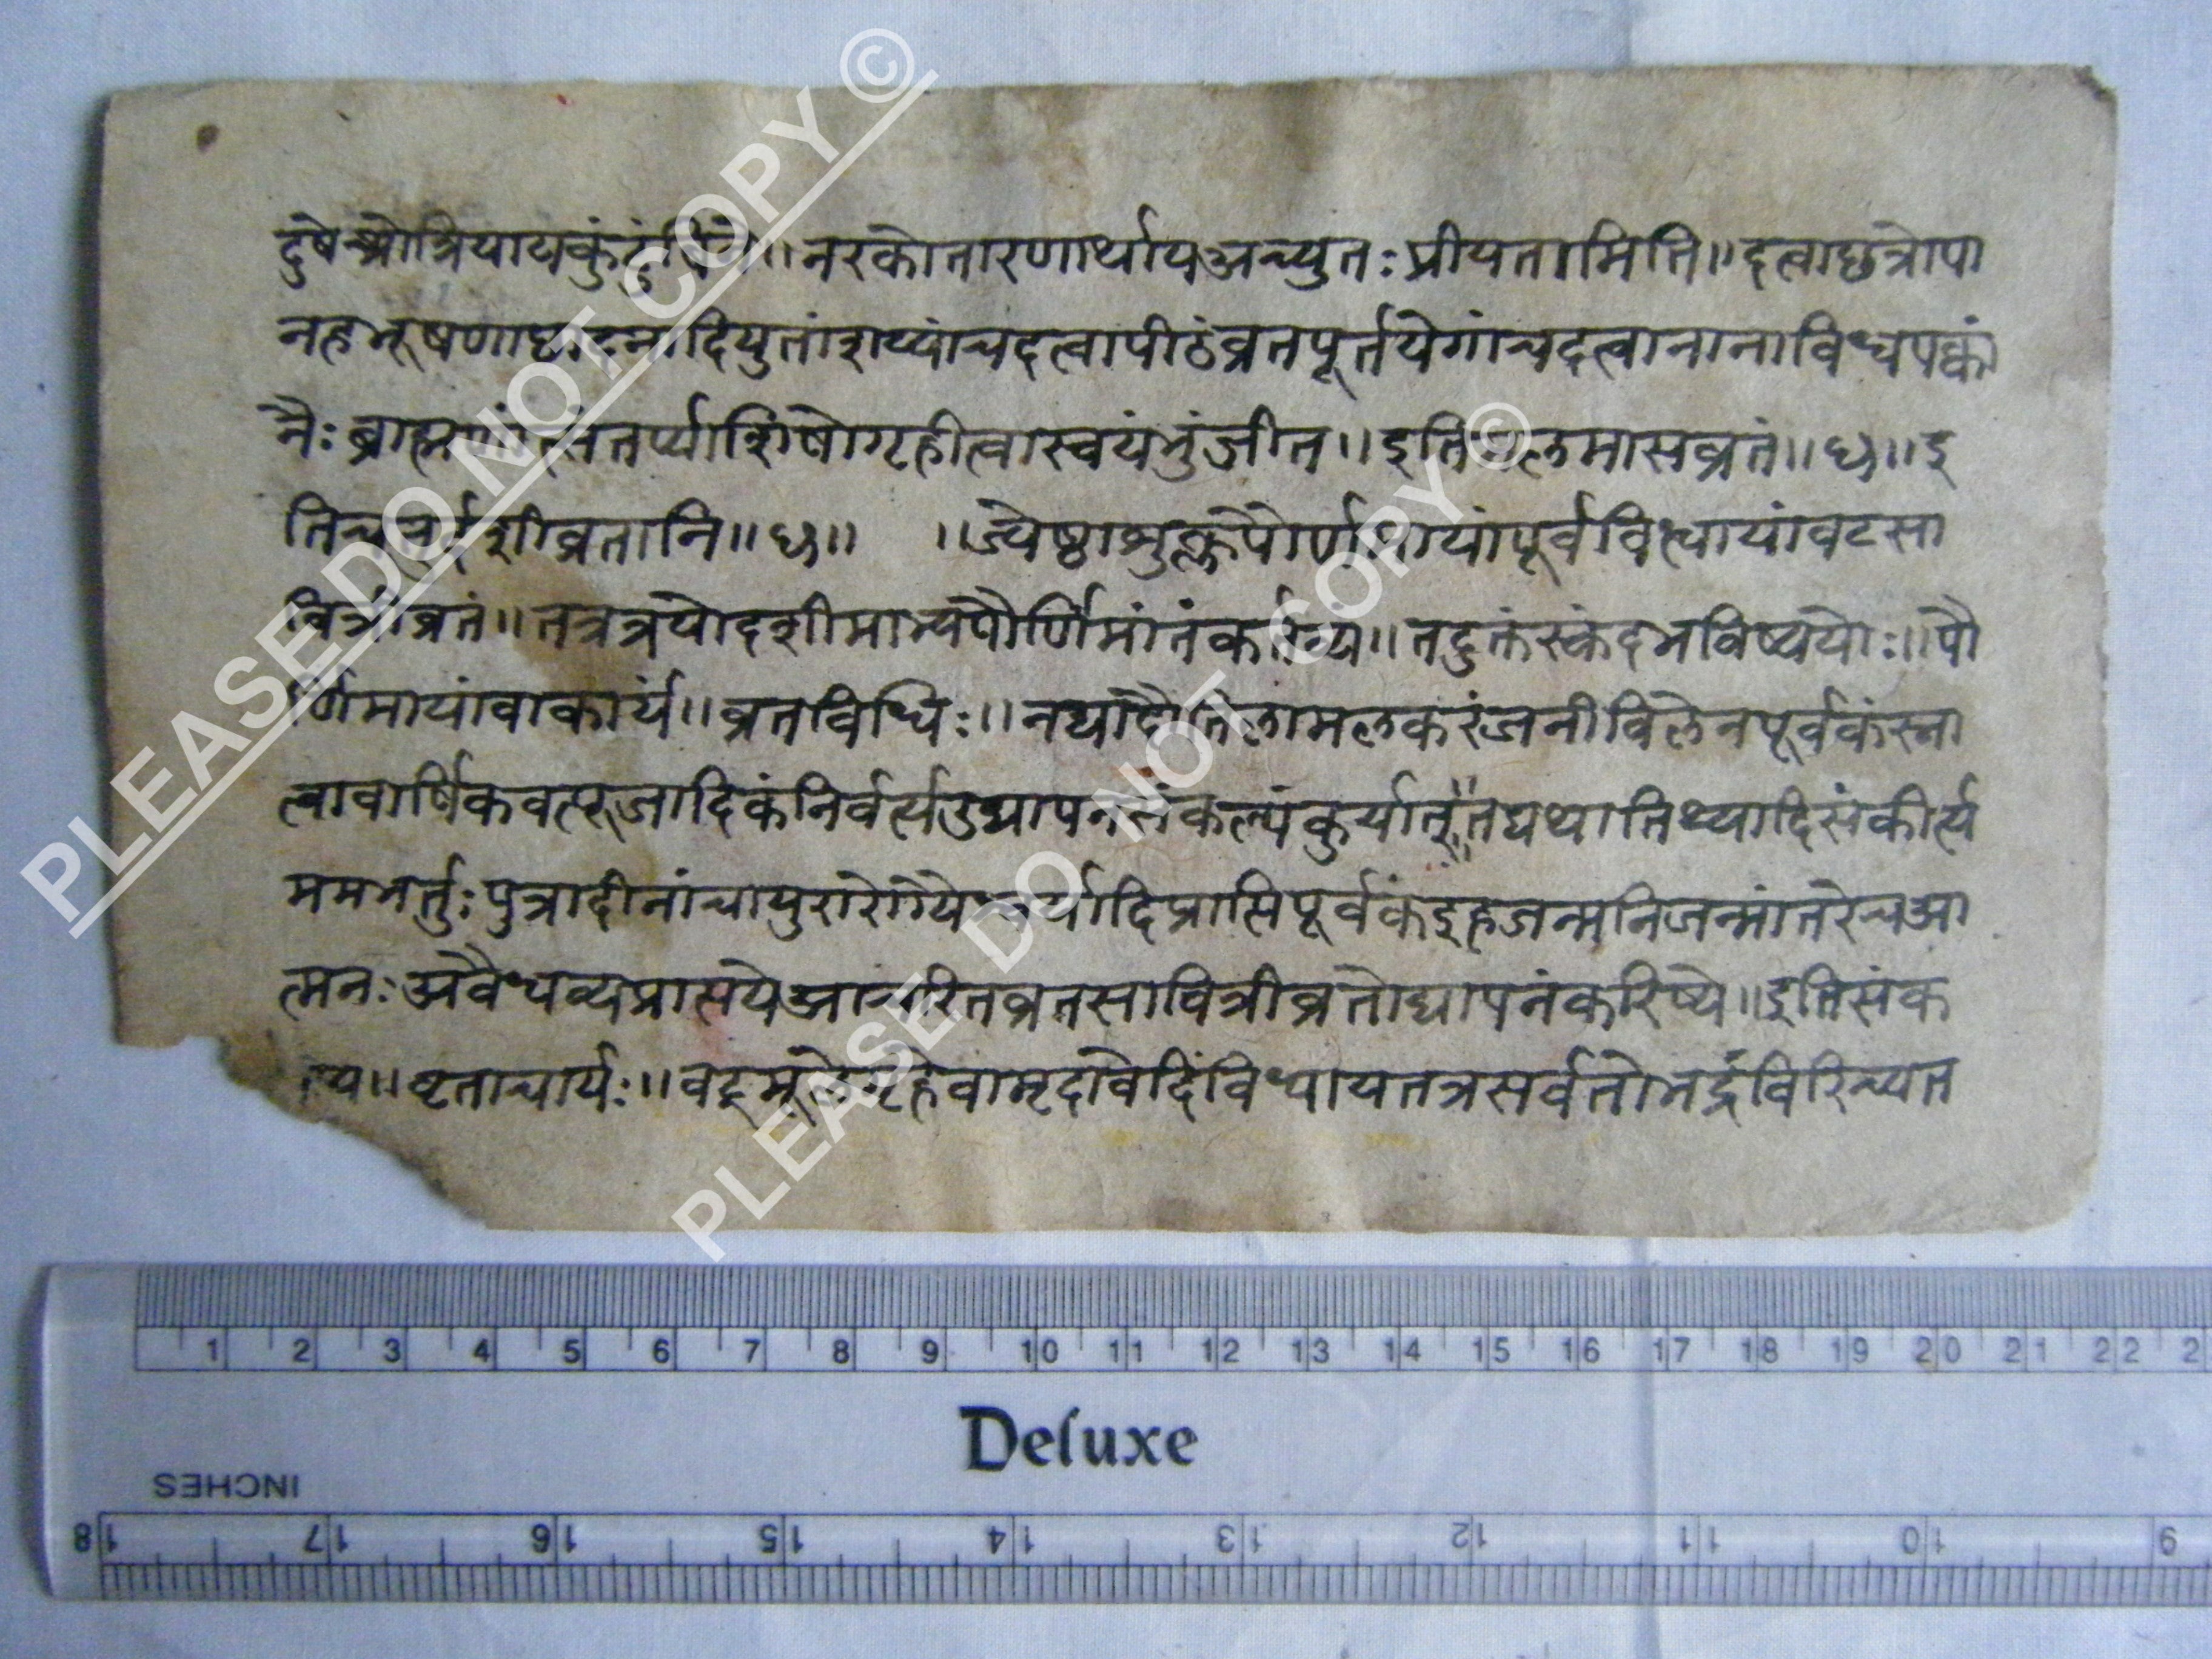 दुषेच्श्रोत्रियायकुंटुंबिने॥नरकोतारणार्थायअच्युतःप्रीयतामिति॥दत्वाछत्रोपा
नहभूषणाछादनादियुतांशय्यांचदत्वापीठंव्रतपूर्तयेगांचदत्वानानाविधपक्वां
नैःब्राह्मणांत्संतर्प्याशिषोगृहीत्वास्वयंभुंजीत॥इतिमलमासव्रतं॥छ॥इ
तिचतुर्दशीव्रतानि॥छ॥ ॥ज्येष्ठाशुक्लपौर्णमायांपूर्वविध्यायांवटसा
वित्रीव्रतं॥तत्रत्रयोदशीमाभ्यपौर्णिमांतंकर्तव्यं॥तदुक्तंस्कंदभविष्ययोः॥पौ
र्णिमायांवाकार्यं॥व्रतविधिः॥नद्यादौतिलामलकरंजनीविलेनपूर्वकंस्ना
त्वावार्षिकवत्पूजादिकंनिर्वर्त्यउद्यापनसंकल्पंकुर्यात्॥तद्यथातिथ्यादिसंकीर्त्य
ममभर्तुःपुत्रादीनांचायुरारोग्यैश्वर्यादिप्राप्तिपूर्वकंइहजन्मनिजन्मांतरेचआ
त्मनःअवैधव्यप्राप्तयेआचरितव्रतसावित्रीव्रतोद्यापनंकरिष्ये॥इतिसंक
ल्प्य॥वृताचार्यः॥वटमूलेगृहेवामृदावेदिंविधायतत्रसर्वतोभद्रंविरिच्यत
PLEASE DO NOT COPY ©
PLEASE DO NOT COPY ©
1 2 3 4 5 6 7 8 9 10 11 12 13 14 15 16 17 18 19 20 21 22 2
Deluxe
INCHES
18 17 16 15 14 13 12 11 10 9